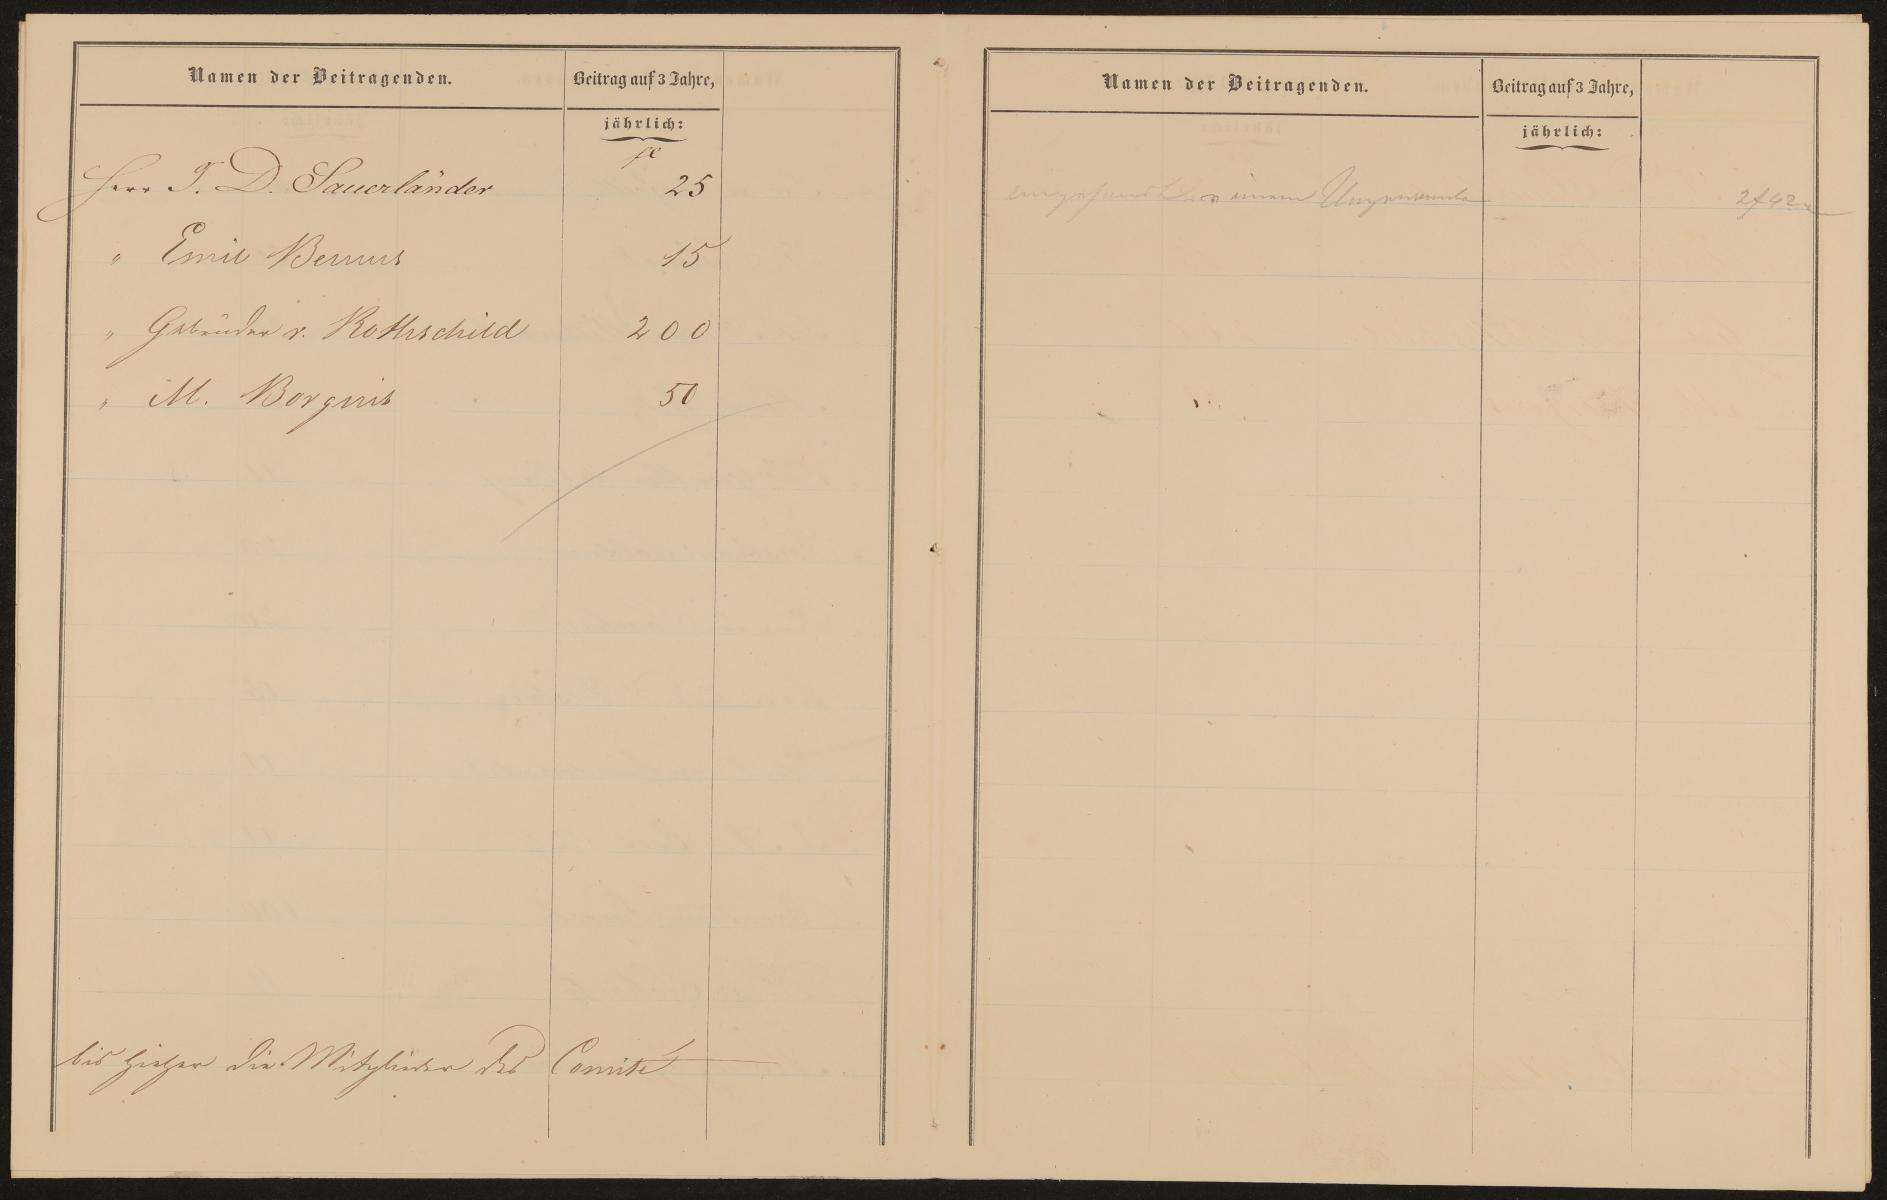 Namen der Beitragenden.
Beitrag auf 3 Jahre,
jährlich:
fl
Herr J. D. Sauerländer 25
" Emil Bernus 15
" Gebrüder v. Rothschild 200
" M. Borgnis 50
bis hieher die Mitglieder des Comité
Namen der Beitragenden.
Beitrag auf 3 Jahre,
jährlich:
eingesandt v einem Ungenannten 2f42x